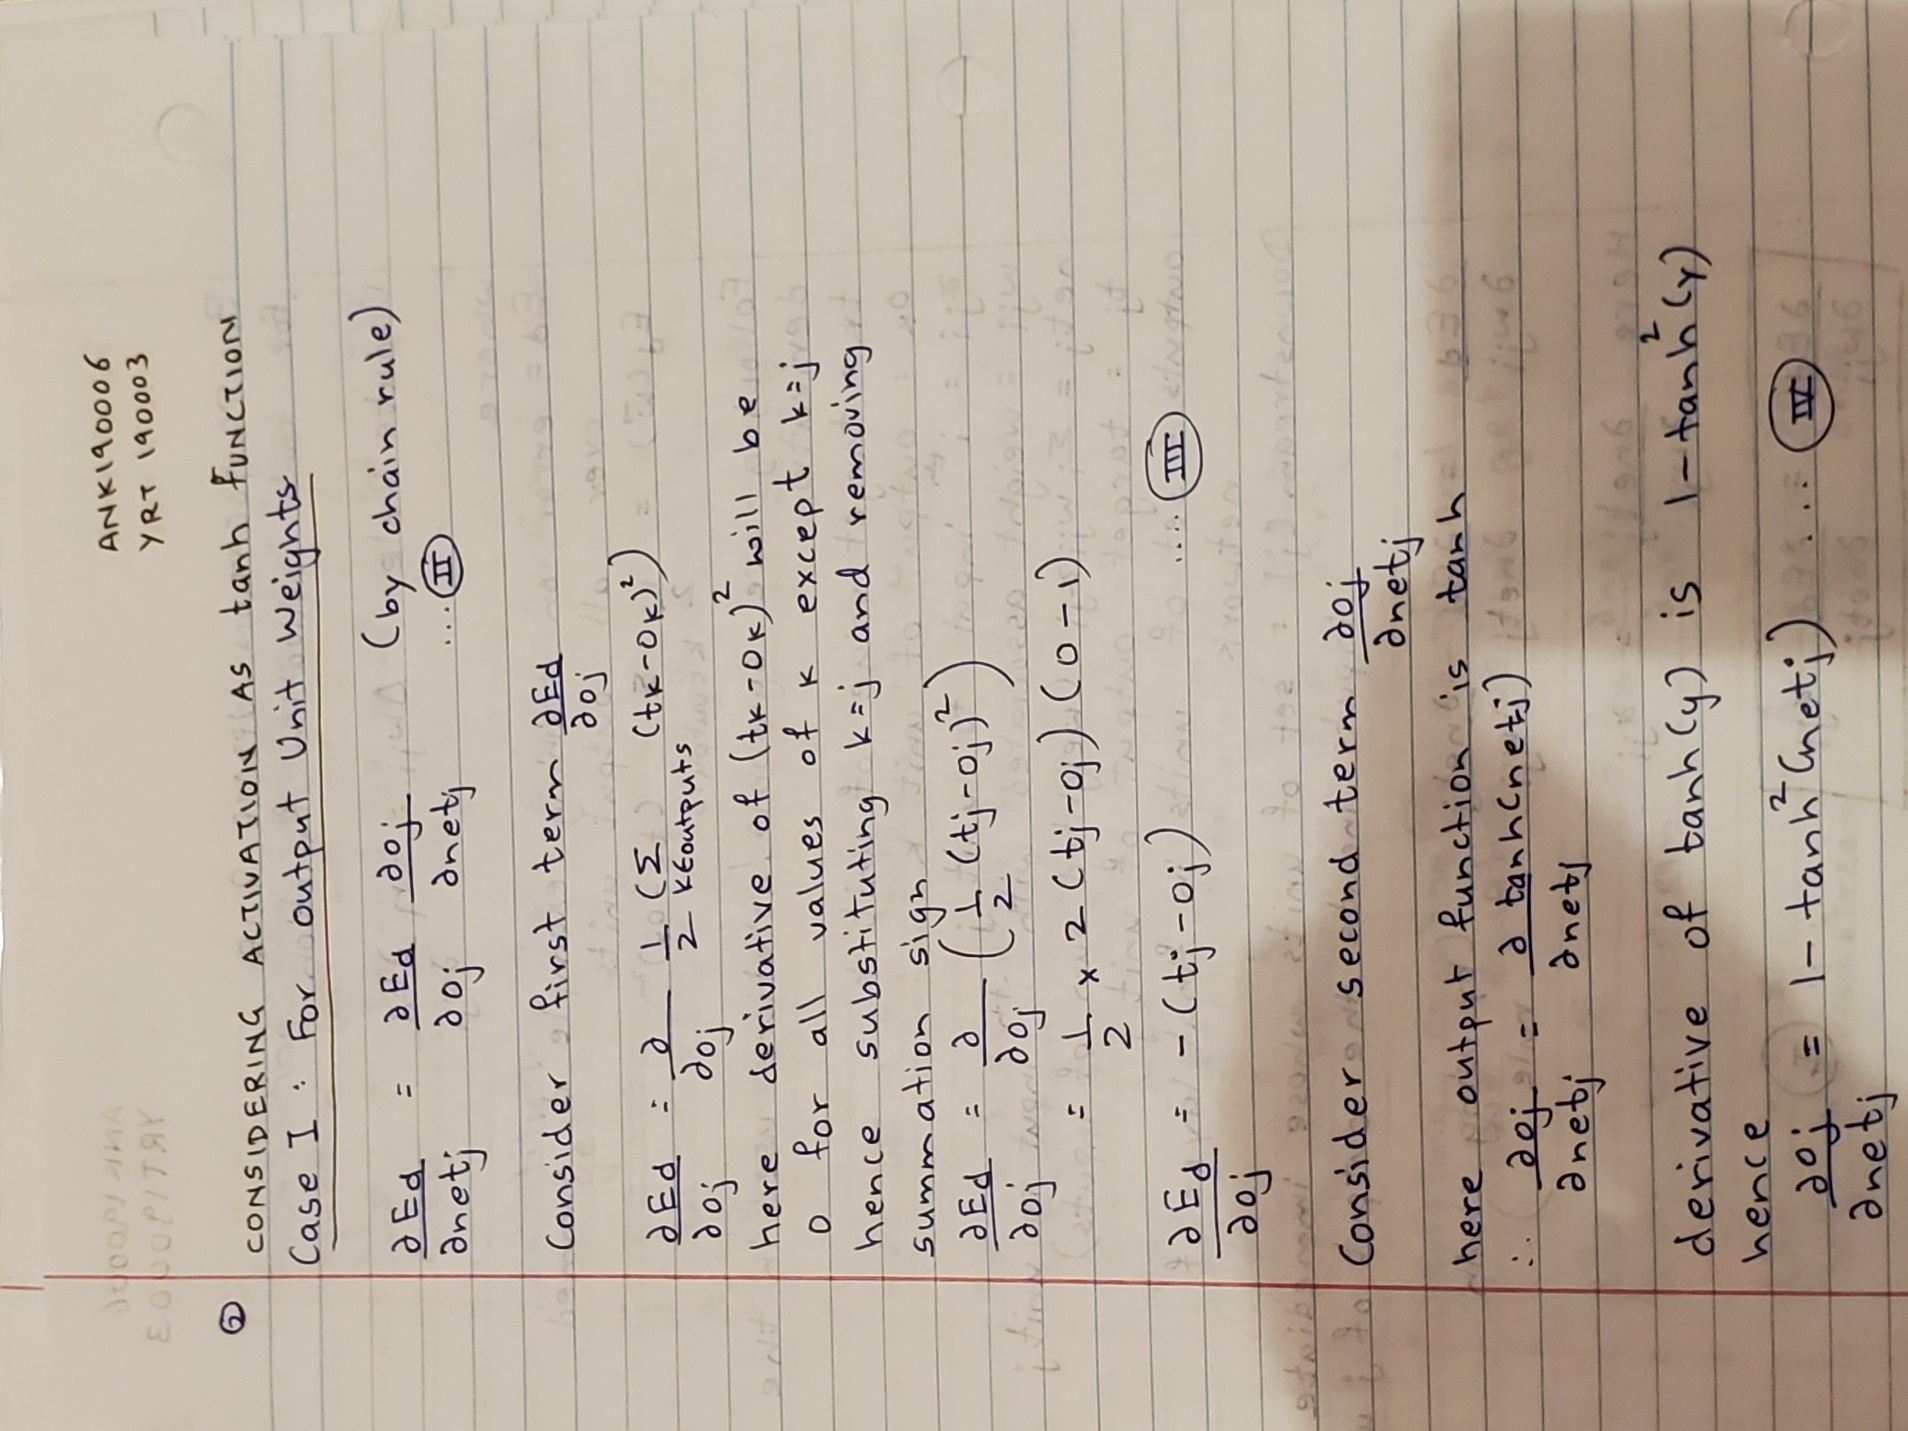 ANK190006
YRT 190003
②
CONSIDERING ACTIVATION AS tanh FUNCTION
Case I : For output Unit Weights
∂Ed/∂netj = ∂Ed/∂oj ∂oj/∂netj (by chain rule) ....(II)
Consider first term ∂Ed/∂oj
∂Ed/∂oj = ∂/∂oj 1/2 (Σ k∈outputs (tk-ok)²)
here derivative of (tk-ok)² will be
0 for all values of k except k=j
hence substituting k=j and removing
summation sign
∂Ed/∂oj = ∂/∂oj (1/2 (tj-oj)²)
= 1/2 x 2 (tj-oj) (0-1)
∂Ed/∂oj = -(tj-oj) ....(III)
Consider second term ∂oj/∂netj
here output function is tanh
∴ ∂oj/∂netj = ∂ tanh(netj)/∂netj
derivative of tanh(y) is 1-tanh²(y)
hence
∂oj/∂netj = 1-tanh²(netj) ....(IV)